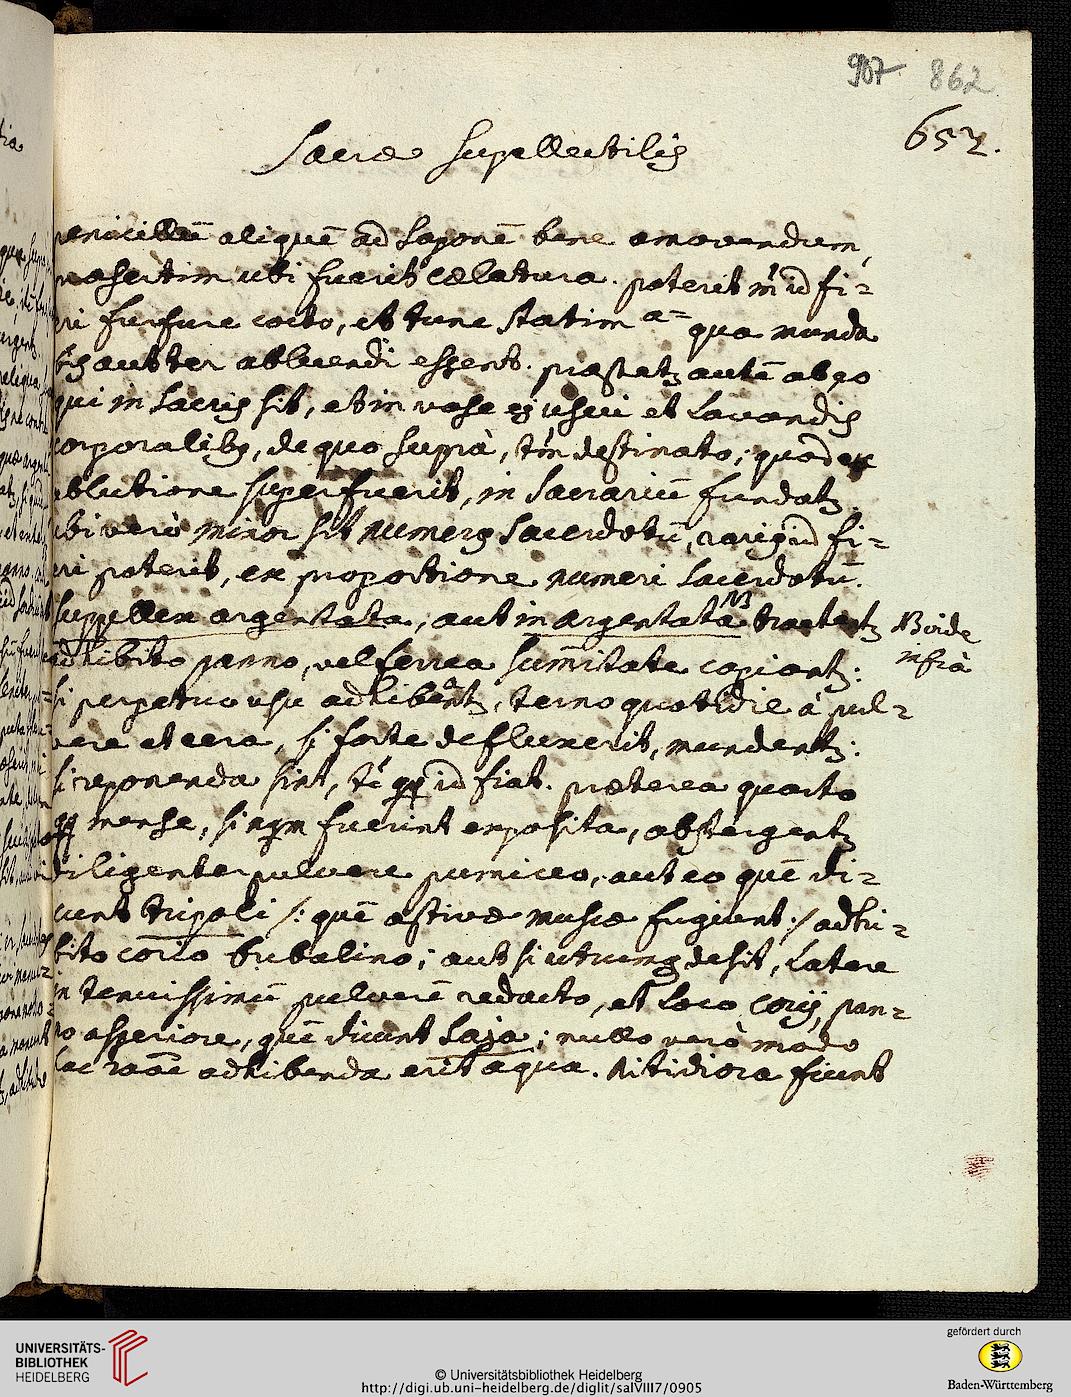 907 862
652.
Sacræ Supellectilis
penicillū aliquē ad saponē bene amovendum,
præsertim ubi fuerit cælatura. poterit in id fi-
eri furfure cocto, et tunc statim a- qua munda
bis aut ter abluendi essent. præstatq autē ab eo
qui in sacris sit, et in vase ej usui et lavandis
corporalibq, de quo suprà, tm̄ destinato; quod ex
ablutione superfuerit, in sacrariū fundatq
ubi verò minor sit numerq sacerdotū, rariq id fi-
eri poterit, ex proportione numeri sacerdotū.
Supellex argentata, aut inargentata NB tractentq
adhibito panno, vel ferrea sum̄itate capiantq:
si perpetuo usu adhibeantq, terno quotidie à pul-
vere et cera, si forte defluxerit, mundentq:
si reponenda sint, tc̄ qq id fiat. præterea quarto
qq mense, si nqm fuerint exposita, abstergantq
diligenter pulvere pumiceo, aut eo quē di-
cunt tripoli /: quē æstivæ muscæ fugiunt :/ adhi-
bito corio bubalino; aut si utrumq desit, latere
in tenuissimū pulverē redacto, et loco corij, pan-
no asperiore, quē dicunt Saja; nullo verò modo
hac raōe adhibenda erit aqua. Nitidiora fiunt
NB vide
infrà
UNIVERSITÄTS-
BIBLIOTHEK
HEIDELBERG
© Universitätsbibliothek Heidelberg
http://digi.ub.uni-heidelberg.de/diglit/salVIII7/0905
gefördert durch
Baden-Württemberg